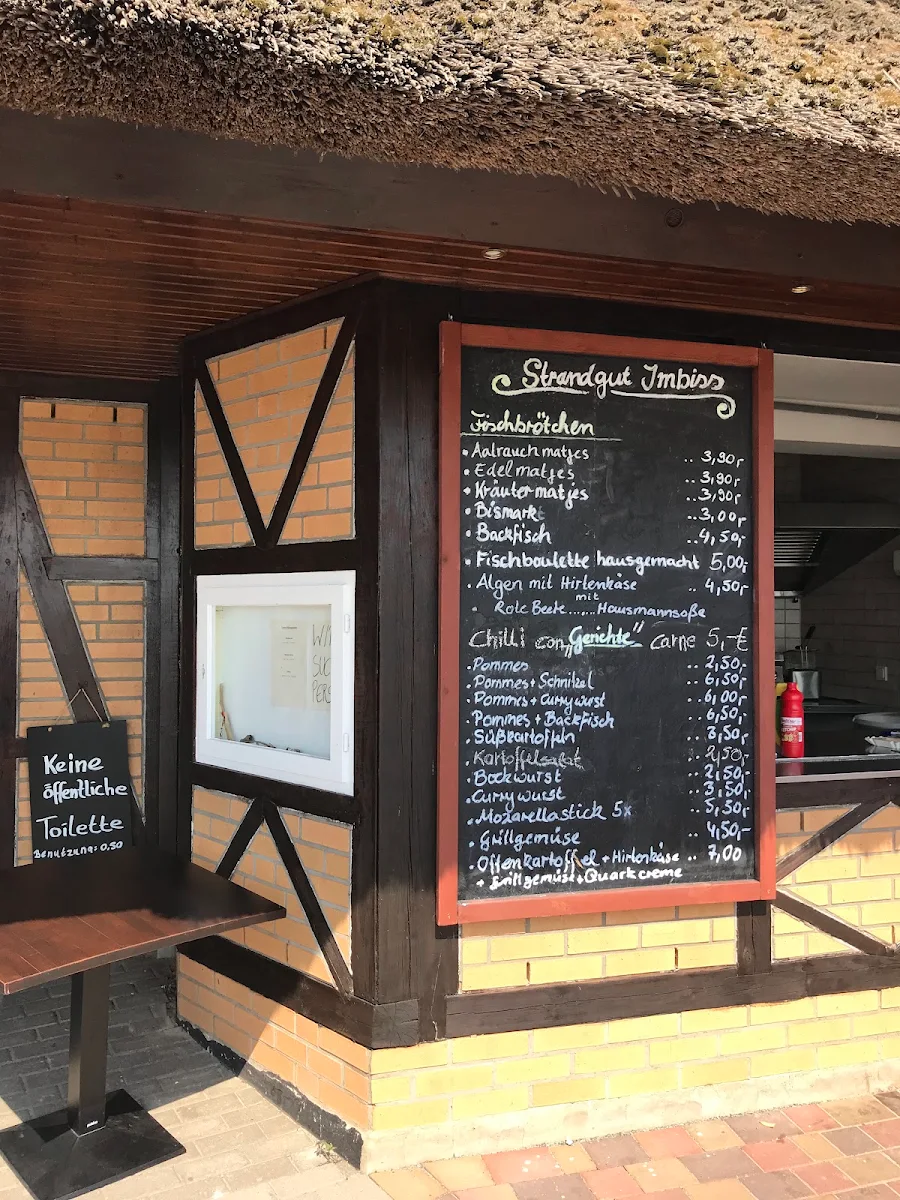 Strandgut Imbiss
Fischbrötchen
• Aalrauchmatjes .. 3,90,-
• Edelmatjes .. 3,90,-
• Kräutermatjes .. 3,90,-
• Bismark ..3,00,-
• Backfisch ..4,50,-
• Fischboulette hausgemacht 5,00,-
• Algen mit Hirtenkäse .. 4,50,-
mit
• Rote Beete ...... Hausmannsoße
Chilli con „Gerichte" Carne 5,-€
• Pommes .. 2,50,-
• Pommes + Schnitzel .. 6,50,-
• Pommes + Currywurst .. 6,00,-
• Pommes + Backfisch .. 6,50,-
• Süßkartoffeln .. 3,50,-
• Kartoffelsalat .. 2,50,-
• Bockwurst .. 2,50,-
• Currywurst .. 3,50,-
• Mozarellastick 5x .. 5,50,-
• Grillgemüse .. 4,50,-
• Offenkartoffel + Hirtenkäse .. 7,00
+ Grillgemüse + Quarkcreme
WIR
SUC
PERS
Keine
öffentliche
Toilette
Benutzung: 0.50